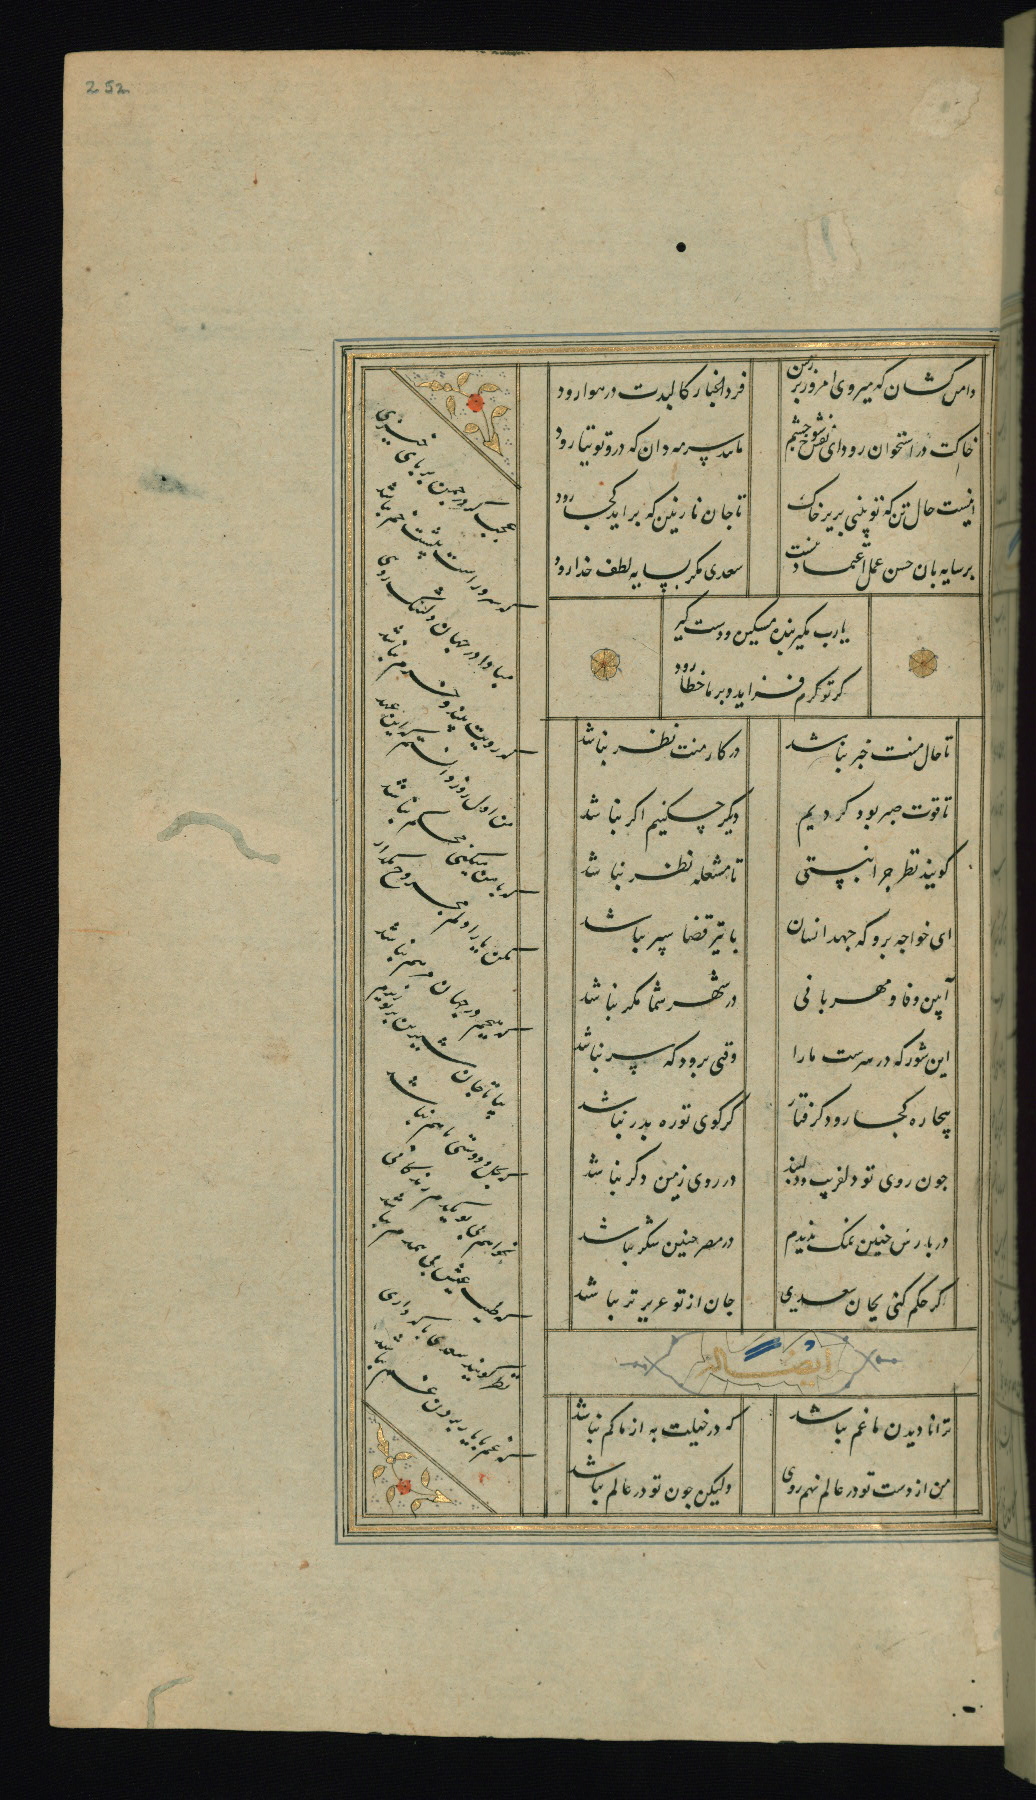 252
دامن کشان که میروی امروز بر زمین
فردا غبار کالبدت در هوا رود
خاکت در استخوان رود ای نفس شوخ چشم
مانند سرمه دان که درو توتیا رود
اینست حال تن که تو بینی بزیر خاک
تا جان نازنین که براید کجا رود
بر سایه بان حسن عمل اعتماد نیست
سعدی مکر بسایه لطف خدا رود
یارب مکیر بنده مسکین و دست کیر
کز تو کرم فزاید و بر ما خطا رود
تا حال منت خبر نباشد
در کار منت نظر نباشد
تا قوت صبر بود کردیم
دیکر چکنیم اکر نباشد
کویند نظر چرا نبستی
تا مشغله نظر نباشد
ای خواجه برو که جهد انسان
با تیر قضا سپر نباشد
آیین وفا و مهربانی
در شهر شما مکر نباشد
این شور که در سرست ما را
وقتی برود که سر نباشد
بیچاره کجا رود کرفتار
کز کوی تو ره بدر نباشد
چون روی تو دلفریب و دلبند
در روی زمین دکر نباشد
در پارس چنین نمک ندیدم
در مصر چنین شکر نباشد
کر حکم کنی بجان سعدی
جان از تو عزیزتر نباشد
ایضا له
ترا نادیدن ما غم نباشد
که در خیلت به از ما کم نباشد
من از دست تو در عالم نهم روی
ولیکن چون تو در عالم نباشد
عجب کر در چمن بر پای خیزی
که سرو راست پیشت خم نباشد
مبادا در جهان دلتنک رویی
که رویت بیند و خرم نباشد
من اول روز دانستم که این عهد
که با من میکنی محکم نباشد
مکن یارا دلم مجروح مکذار
که هیچم در جهان مرهم نباشد
بیا تا جان شیرین بر تو ریزم
که بخل و دوستی با هم نباشد
نخواهم بی تو یکدم زندکانی
که طیب عیش بی همدم نباشد
نظر کویند سعدی با که داری
که غم با یار بردن غم نباشد